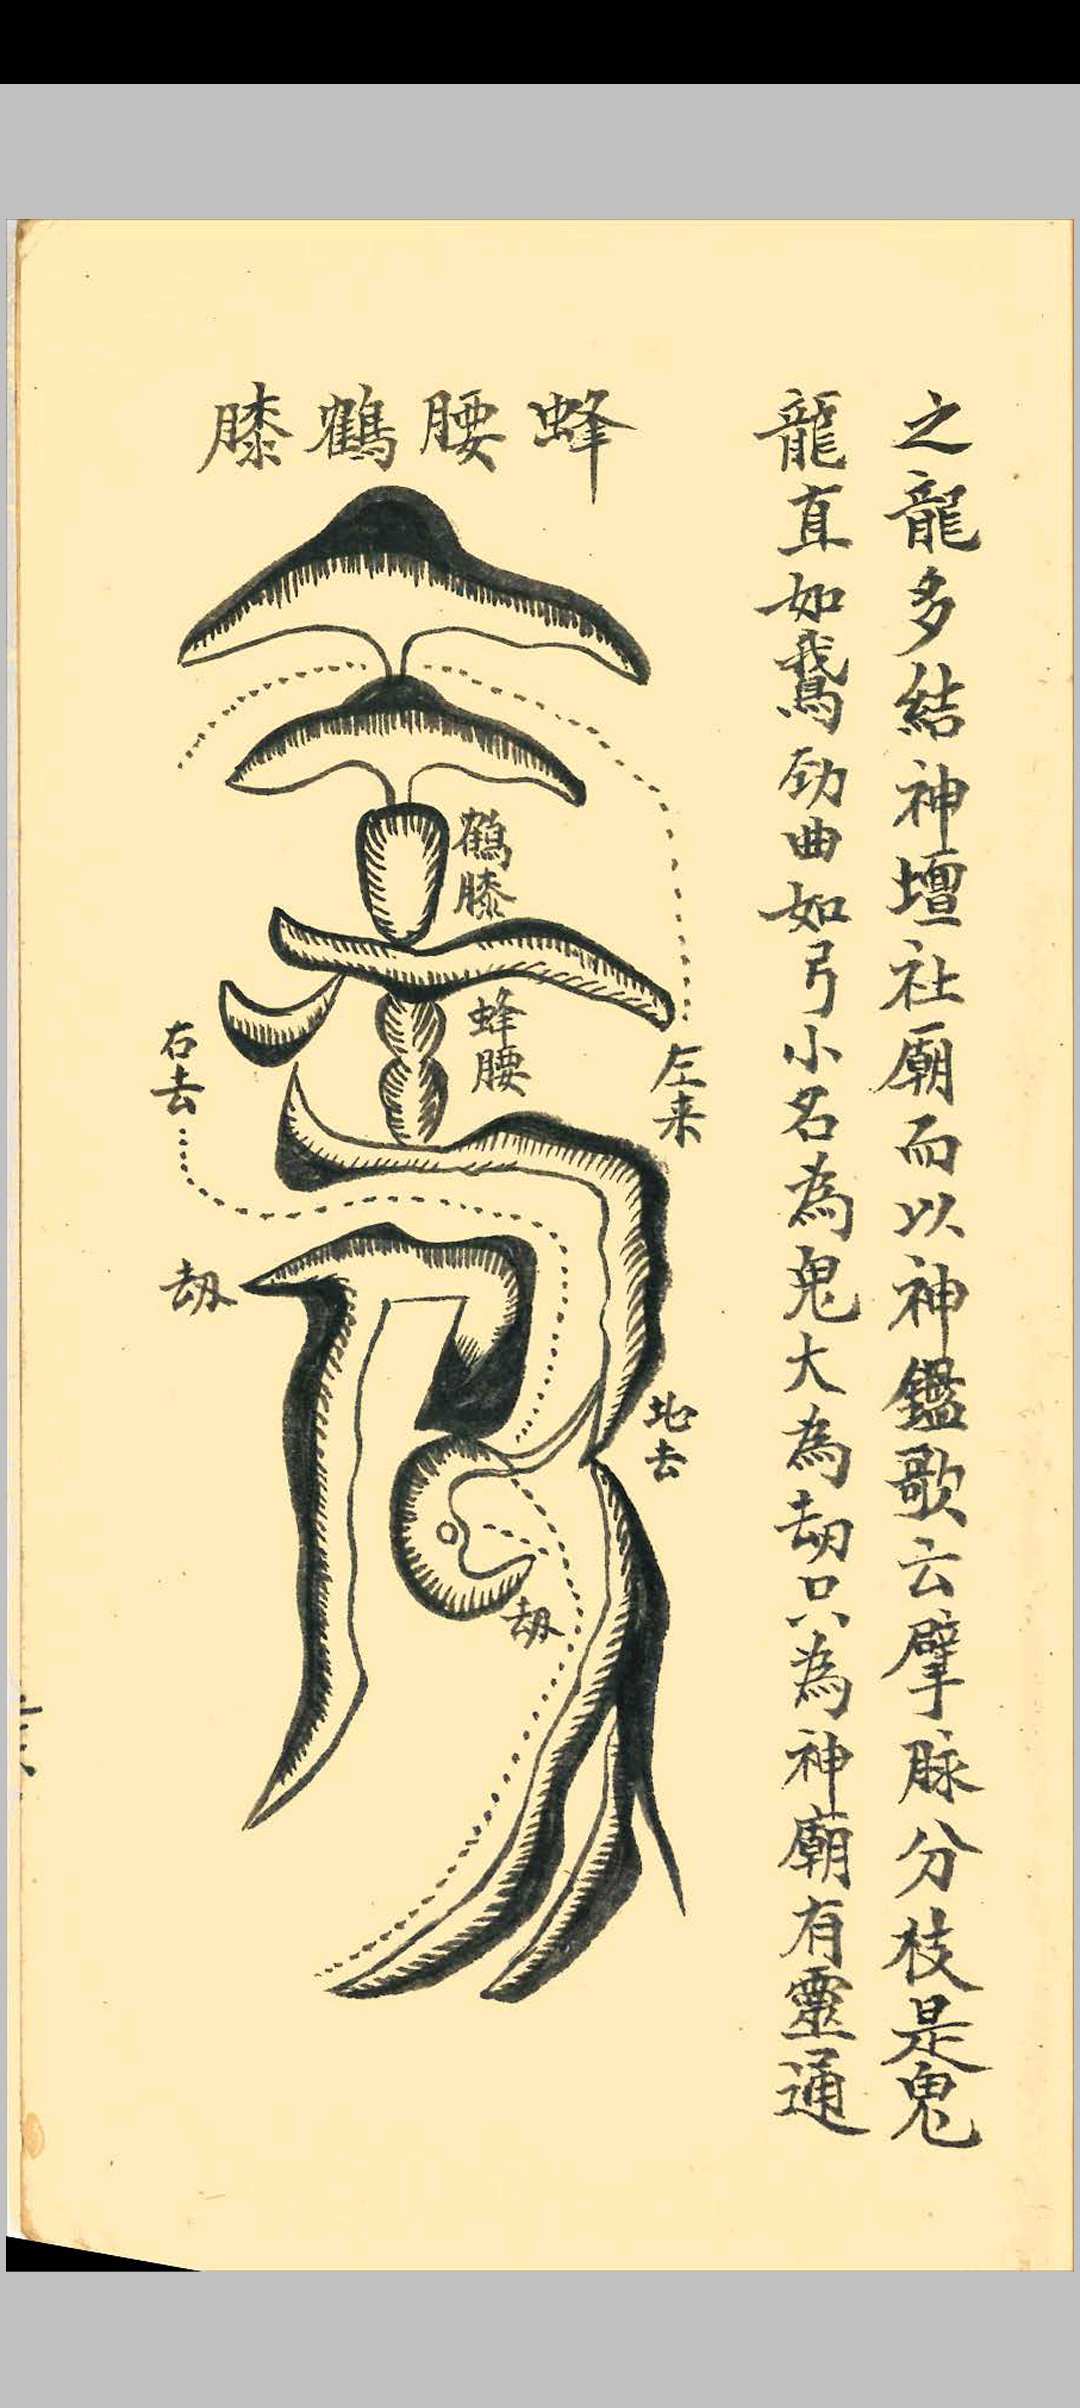 之龍多結神壇社廟而以神鑑歌云擘脉分枝是鬼
龍直如鵞頸曲如弓小名為鬼大為劫只為神廟有靈通
蜂腰鶴膝
鶴膝
蜂腰
左来
右去
劫
地去
劫